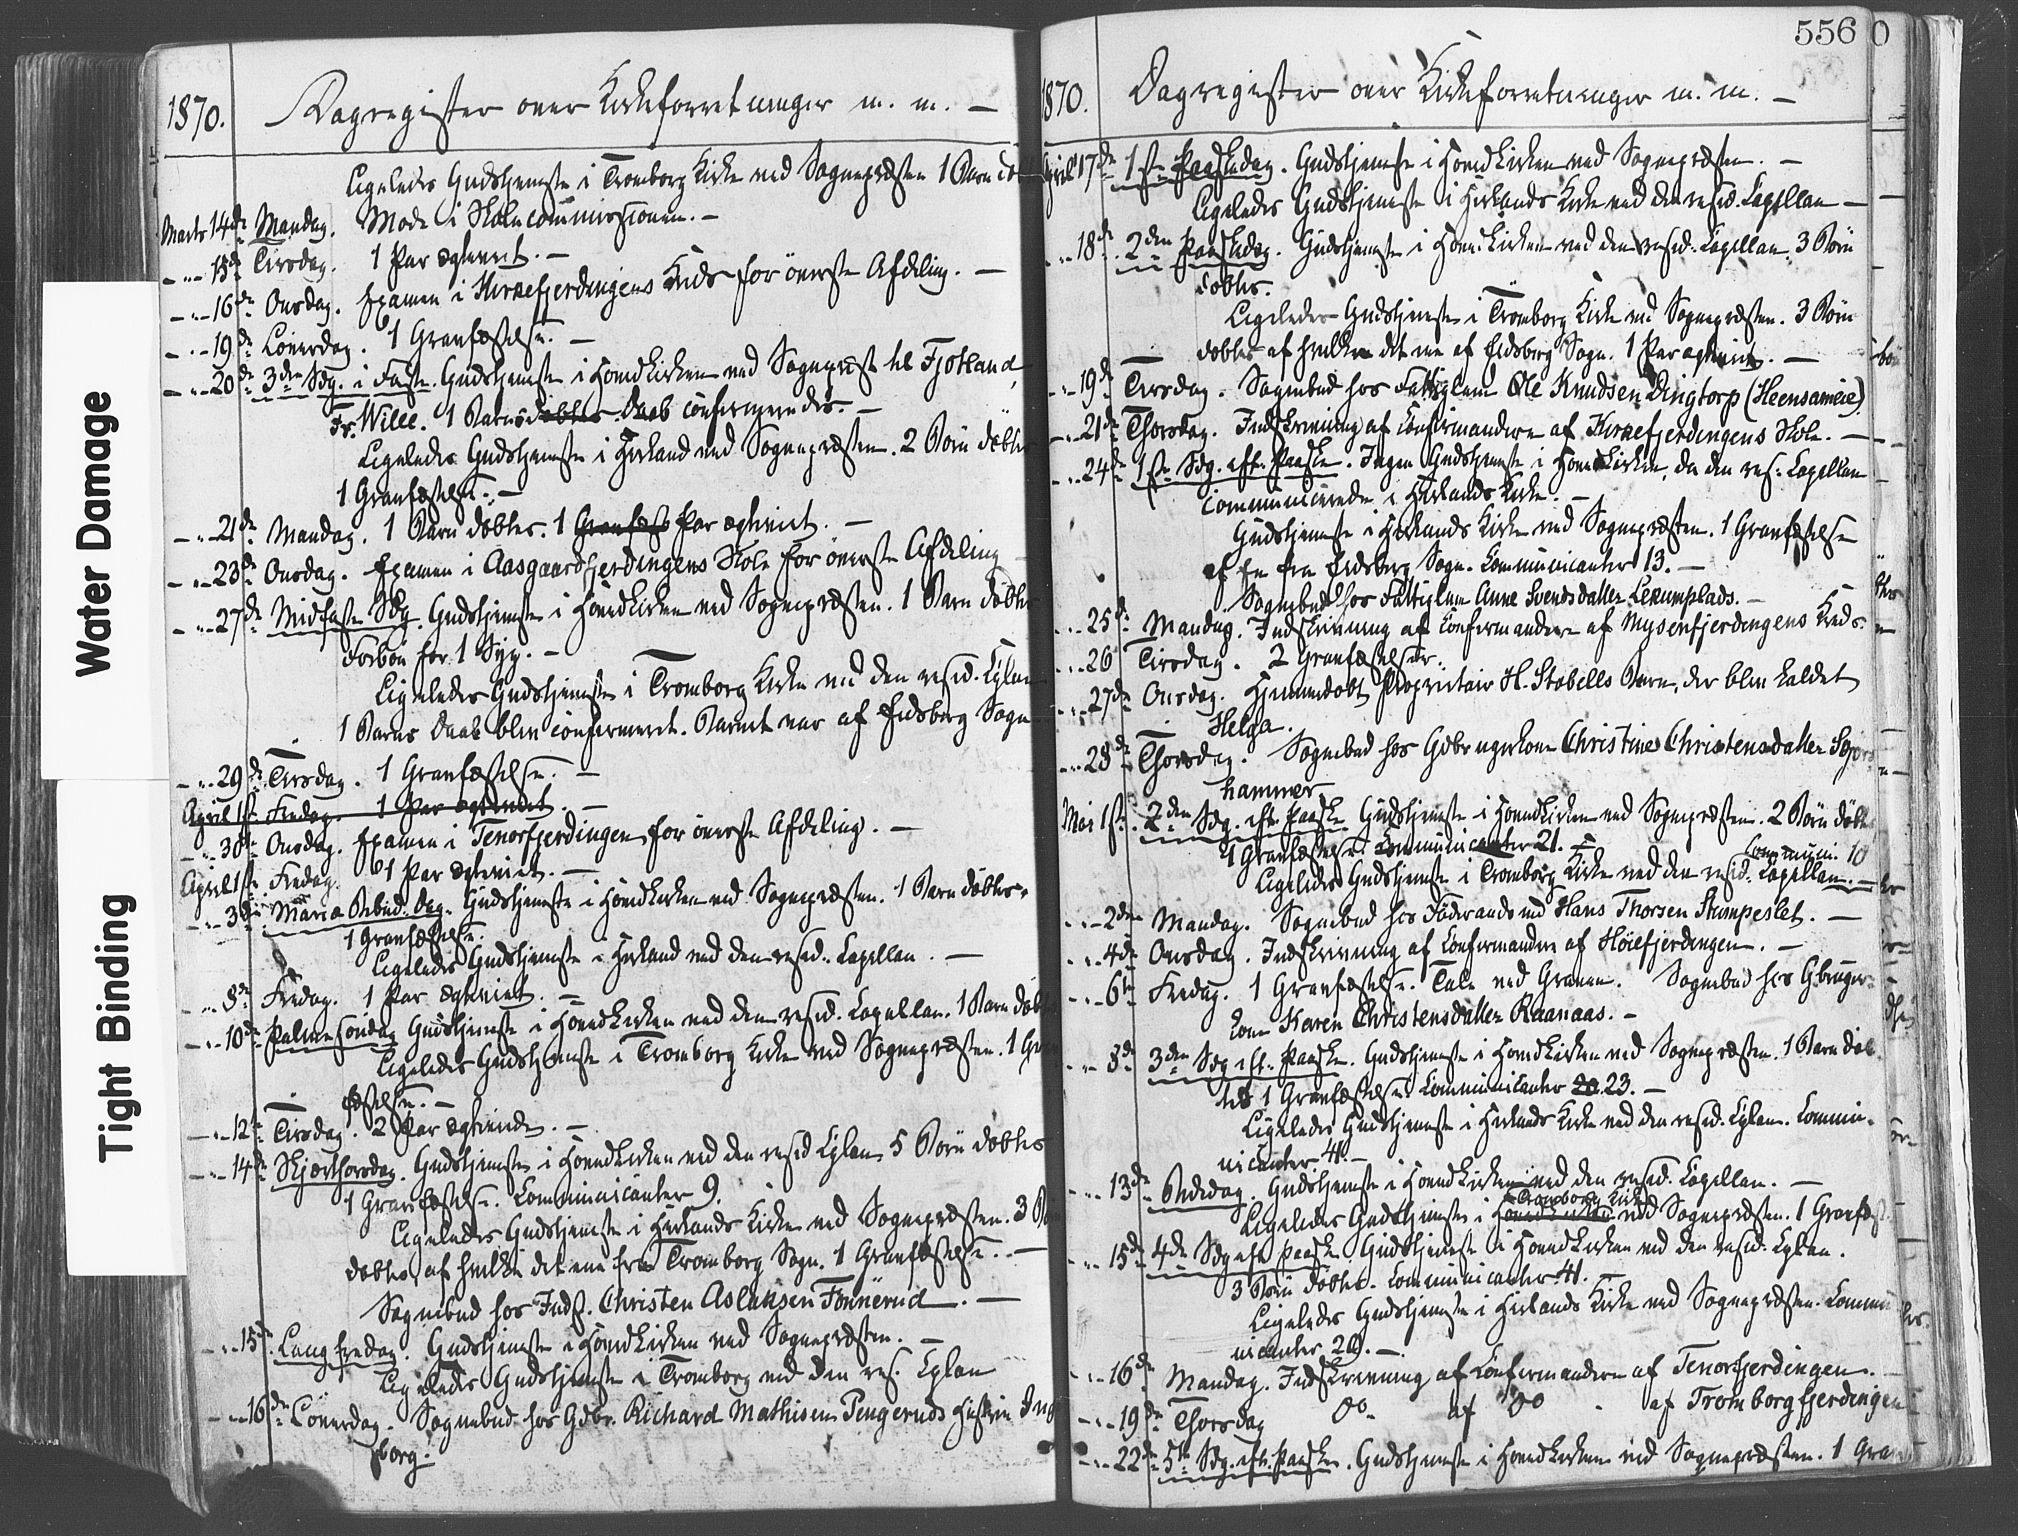 1870. Dagregister over Kirkeforretninger m. m. —
Ligeledes Gudstjeneste i Tromborg Kirke ved Sognepræsten 1 Barn døbt
Marts 14de Mandag. Møde i Skolecommissionen. —
— „ — 15de Tirsdag. 1 Par ægteviet. —
— „ — 16de Onsdag. Examen i Herrefjerdingens Kreds for øverste Afdeling. —
— „ — 19de Löverdag. 1 Gravfæstelse. —
— „ — 20de 3die Sdg. i Faste. Gudstjeneste i Hovedkirken ved Sognepræst til Fjotland,
Fr. Wille. 1 Barns döbtes Daab confirmeredes. —
Ligeledes Gudstjeneste i Herland ved Sognepræsten. 2 Börn döbtes
1 Gravfæstelse. —
— „ — 21de Mandag. 1 Barn döbtes. 1 Gravfæst Par ægteviet. —
— „ — 23de Onsdag. Examen i Aasgaardfjerdingens Skole for överste Afdeling —
— „ — 27de Midfaste Sdg. Gudstjeneste i Hovedkirken ved Sognepræsten. 1 Barn döbtes
Forbön for 1 Syg. —
Ligeledes Gudstjeneste i Tromborg Kirke ved den resid. Cplan
1 Barns Daab blev confirmeret. Barnet var af Eidsberg Sogn
— „ — 29de Tirsdag. 1 Gravfæstelse. —
April 1ste Fredag. 1 Par ægteviet. —
— „ — 30te Onsdag. Examen i Tenorfjerdingen for överste Afdeling. —
April 1ste Fredag. 1 Par ægteviet. —
— „ — 3die Maria Bebud. Dag. Gudstjeneste i Hovedkirken ved Sognepræsten. 1 Barn döbtes.
1 Gravfæstelse.
Ligeledes Gudstjeneste i Herland ved den resid. Capellan. —
— „ — 8de Fredag. 1 Par ægteviet. —
— „ — 10de Palmesöndag Gudstjeneste i Hovedkirken ved den resid. Capellan. 1 Barn döbt
Ligeledes Gudstjeneste i Tromborg Kirke ved Sognepræsten. 1 Grav
fæstelse. —
— „ — 12te Tirsdag. 2 Par ægteviede. —
— „ — 14de Skjærthorsdag. Gudstjeneste i Hovedkirken ved den resid Cplan 5 Börn döbtes
1 Gravfæstelse. Communicanter 9.
Ligeledes Gudstjeneste i Herlands Kirke ved Sognepræsten. 3 Börn
döbtes, af hvilke det ene fra Tromborg Sogn. 1 Gravfæstelse. —
Sognebud hos Inds. Christen Aslaksen Fönnerud. —
— „ — 15de Langfredag. Gudstjeneste i Hovedkirken ved Sognepræsten. —
Ligeledes Gudstjeneste i Tromborg ved den res. Cplan
— „ — 16de Löverdag. Sognebud hos Gdbr. Richard Mathisen Tengeruds Hustru Inge
borg.
556
1870. Dagregister over Kirkeforretninger m. m. —
April 17de 1ste Paaskedag. Gudstjeneste i Hovedkirken ved Sognepræsten. —
Ligeledes Gudstjeneste i Herlands Kirke ved den resid. Capellan —
— „ — 18de 2den Paaskedag. Gudstjeneste i Hovedkirken ved den resid. Capellan. 3 Börn
döbtes.
Ligeledes Gudstjeneste i Tromborg Kirke ved Sognepræsten. 3 Börn
döbtes af hvilke det ene af Eidsberg Sogn. 1 Par ægteviet. —
— „ — 19de Tirsdag. Sognebud hos Fattiglem Ole Knudsen Dingtorp (Heensameie)
— „ — 21de Thorsdag. Indskrivning af Confirmanderne af Herrefjerdingens Skole. —
— „ — 24de 1ste Sdg. eft. Paaske. Ingen Gudstjeneste i Hovedkirken, da den res. Capellan
communicerede i Herlands Kirke. —
Gudstjeneste i Herlands Kirke ved Sognepræsten. 1 Gravfæstelse
af En fra Eidsberg Sogn. Communicanter 13. —
Sognebud hos Fattiglem Anne Svendsdatter Lerumplads. —
— „ — 25de Mandag. Indskrivning af Confirmandere af Mysenfjerdingens Kreds.
— „ — 26 Tirsdag. 2 Gravfæstelser.
— „ — 27de Onsdag. Hjemmedöbt Proprietair H. Stabells Barn, der blev kaldet
Helga.
— „ — 28de Thorsdag. Sognebud hos Gdbrugerkone Christine Christensdatter
hammer
Mai 1ste 2den Sdg. eft. Paaske Gudstjeneste i Hovedkirken ved Sognepræsten. 2 Börn döbtes
1 Gravfæstelse. Communicanter 21. —
Communi. 10
Ligeledes Gudstjeneste i Tromborg Kirke ved den resid. Capellan. —
— „ — 2den Mandag. Sognebud hos Föderaadsmd Hans Thorsen Stumpeslet. —
— „ — 4de Onsdag. Indskrivning af Confirmandere af Höiefjerdingen. —
— „ — 6te Fredag. 1 Gravfæstelse. Tale ved Graven. Sognebud hos Gbruger
kone Karen Christensdatter Raanaas. —
— „ — 8de 3die Sdg eft. Paaske. Gudstjeneste i Hovedkirken ved Sognepræsten. 1 Barn döb
tes 1 Gravfæstelse. Communicanter 20 23. —
Ligeledes Gudstjeneste i Herlands Kirke ved den resid. Cplan. Commu-
nicanter 41. —
— „ — 13de Bededag. Gudstjeneste i Hovedkirken ved den resid. Capellan. —
Tromborg Kirke
Ligeledes Gudstjeneste i Hovedkirken ved Sognepræsten. 1 Gravfæst
— „ — 15de 4de Sdg eft Paaske Gudstjeneste i Hovedkirken ved den resid. Cplan.
3 Börn döbtes. Communicanter 41. —
Ligeledes Gudstjeneste i Herlands Kirke ved Sognepræsten. Commu
nicanter 20. —
— „ — 16de Mandag. Indskrivning af Confirmandere af Tenorfjerdingen. —
— „ — 19de Thorsdag Do. af Do - af Tromborgfjerdingen
— „ — 22de 5te Sdg. eft. Paaske. Gudstjeneste i Hovedkirken ved Sognepræsten. 1 Gra
Water Damage
Tight Binding